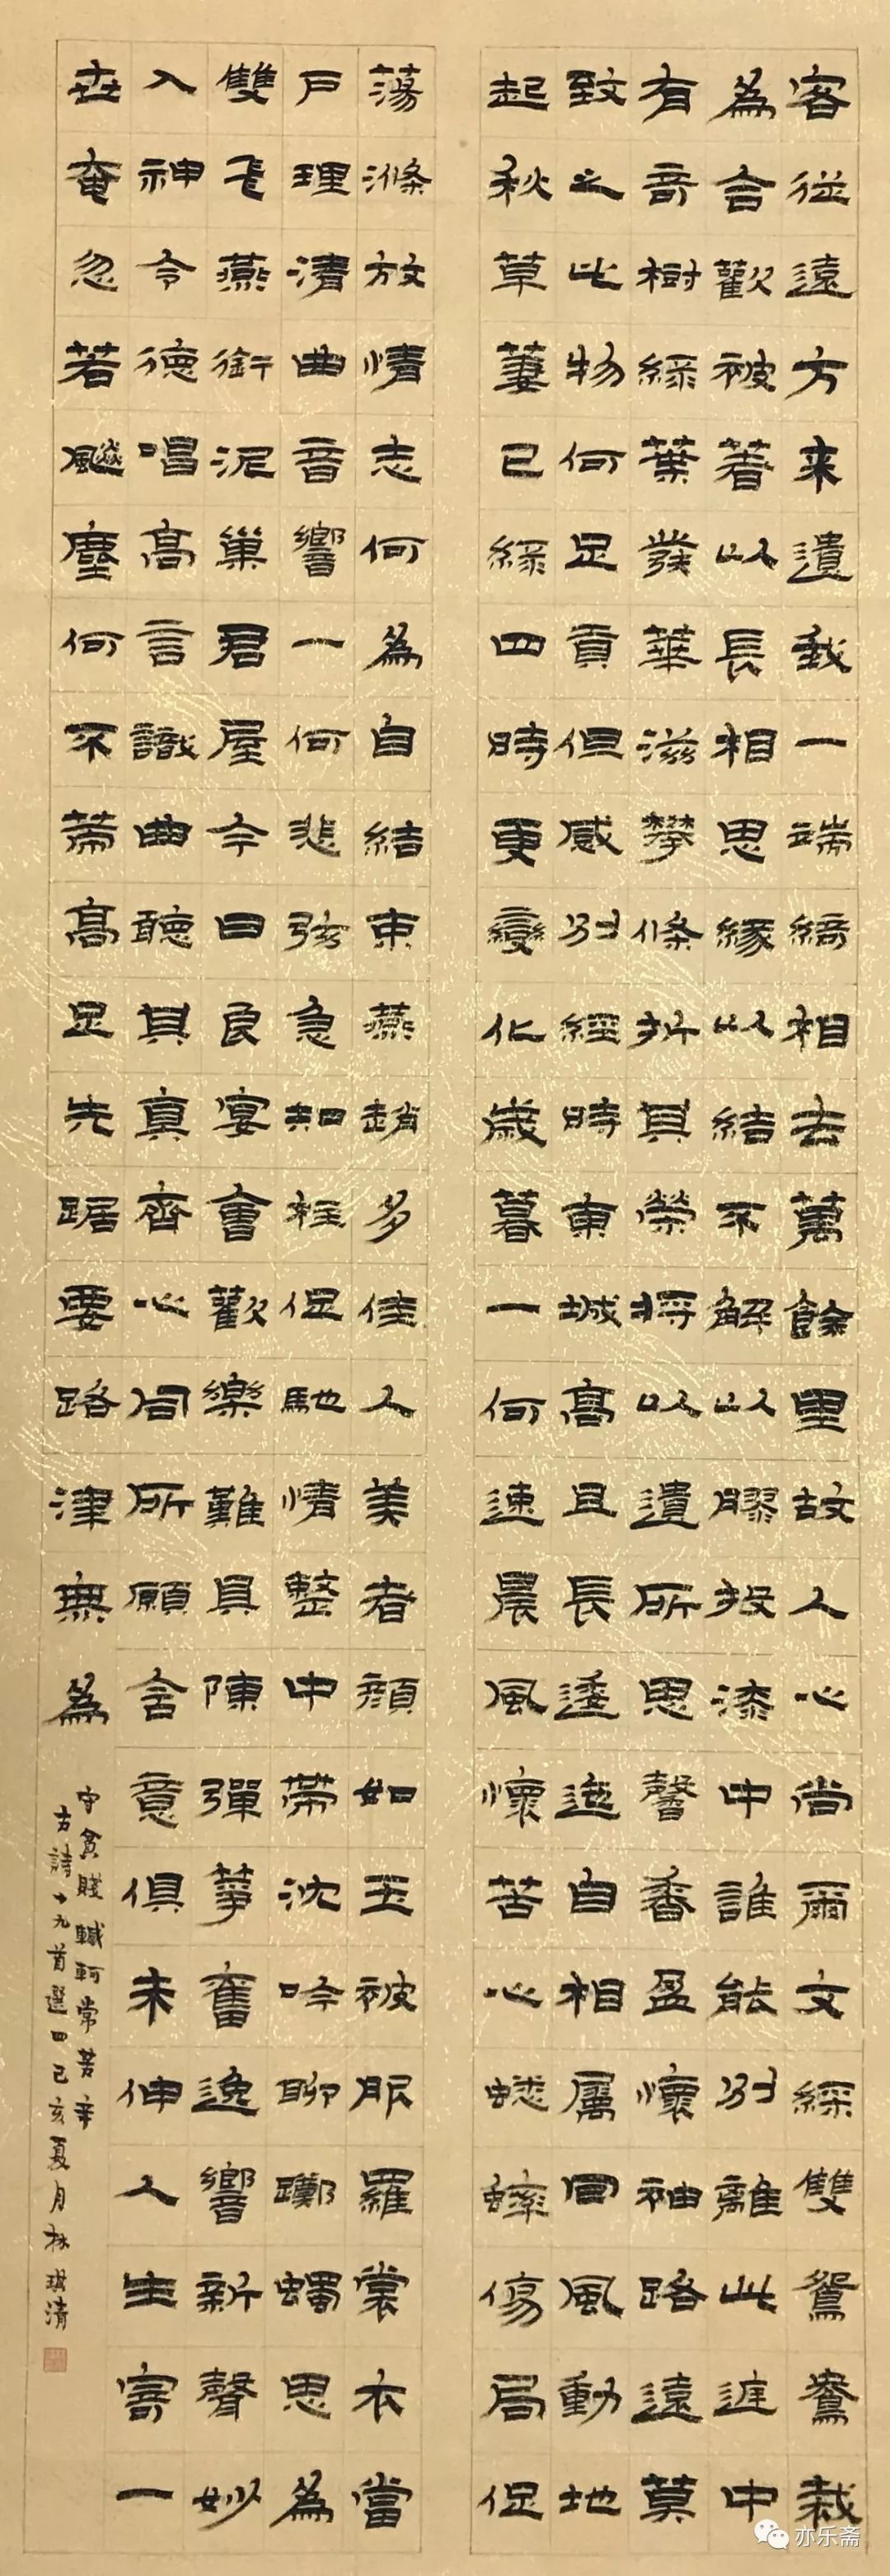 客從遠方来遺我一端綺相去萬餘里故人心尚爾文綵雙鴛鴦裁
為合歡被著以長相思緣以結不解以膠投漆中誰能別離此庭中
有奇樹綠葉發華滋攀條折其榮將以遺所思馨香盈懷袖路遠莫
致之此物何足貢但感別經時東城高且長逶迤自相屬回風動地
起秋草萋已綠四時更變化歲暮一何速晨風懷苦心蟋蟀傷局促
蕩滌放情志何為自結束燕趙多佳人美者顏如玉被服羅裳衣當
戶理清曲音響一何悲弦急知柱促馳情整中帶沈吟聊躑躅思為
雙飛燕銜泥巢君屋今日良宴會歡樂難具陳彈箏奮逸響新聲妙
入神令德唱高言識曲聽其真齊心同所願含意俱未伸人生寄一
世奄忽若飇塵何不策高足先踞要路津無為
守貧賤轗軻常苦辛
古詩十九首選四己亥夏月林清
亦乐斋